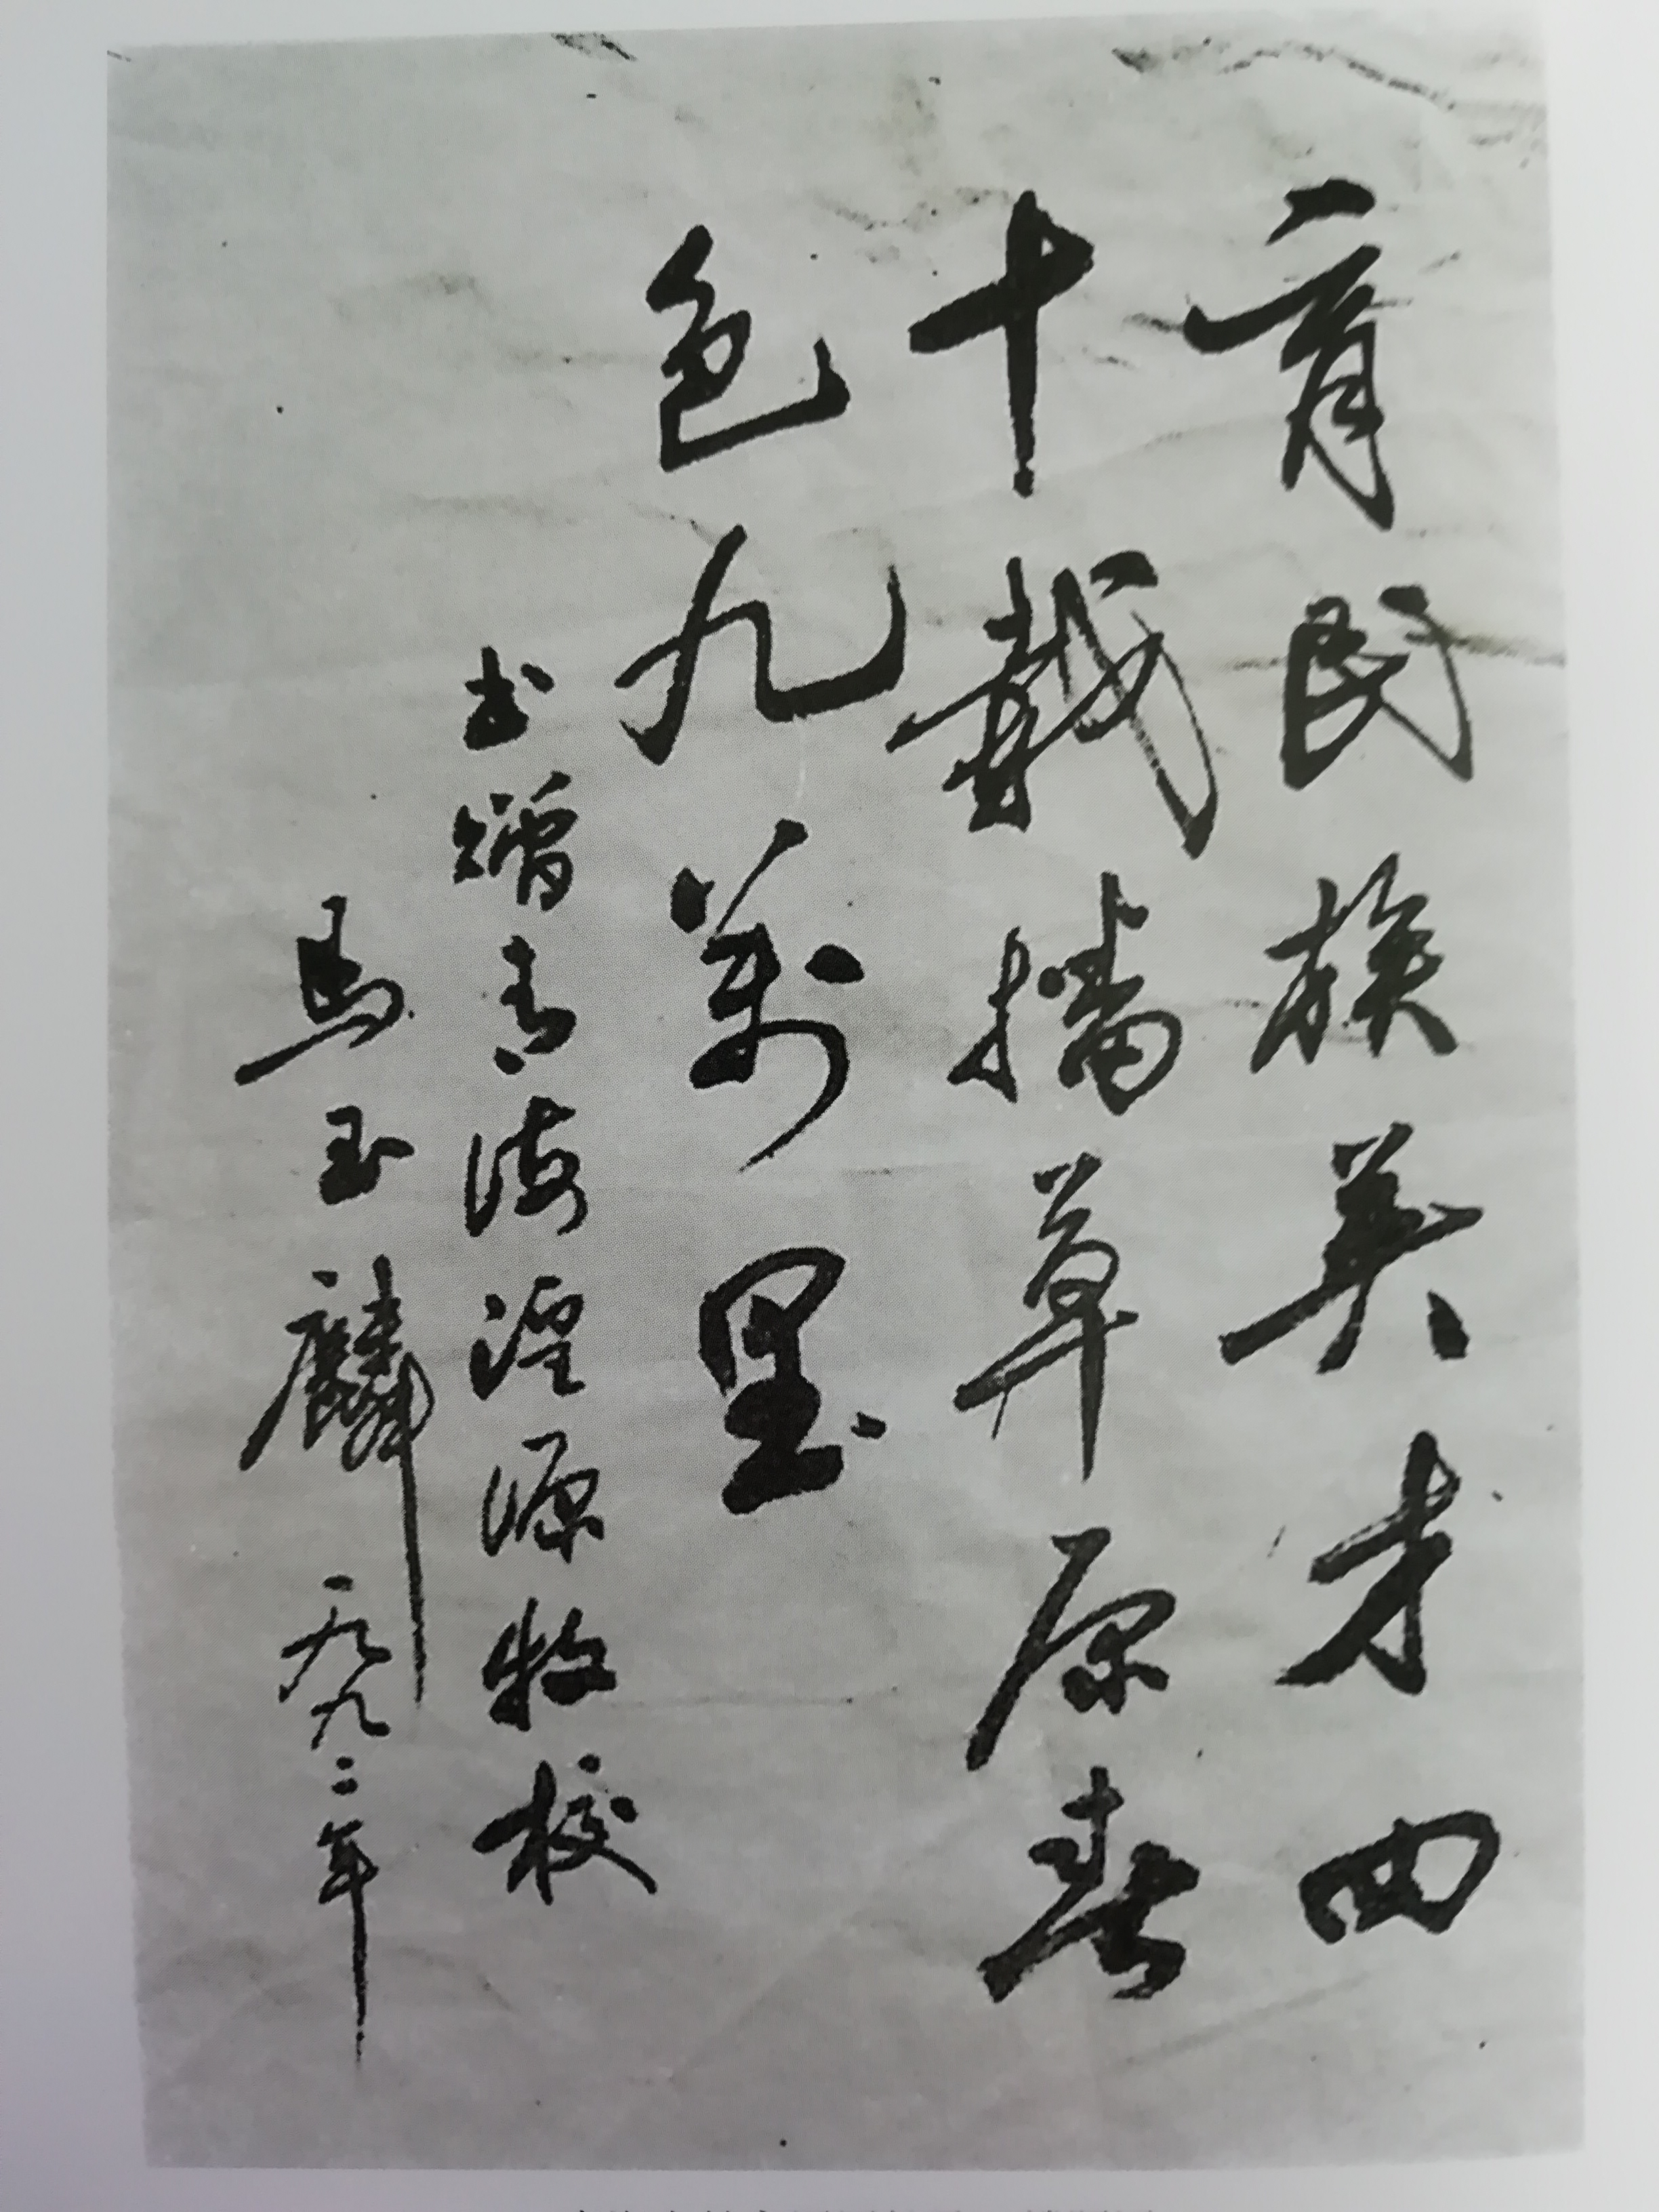 育民族英才四
十載播草原春
色九萬里
书赠青海湟源牧校
馬玉麟 一九九二年